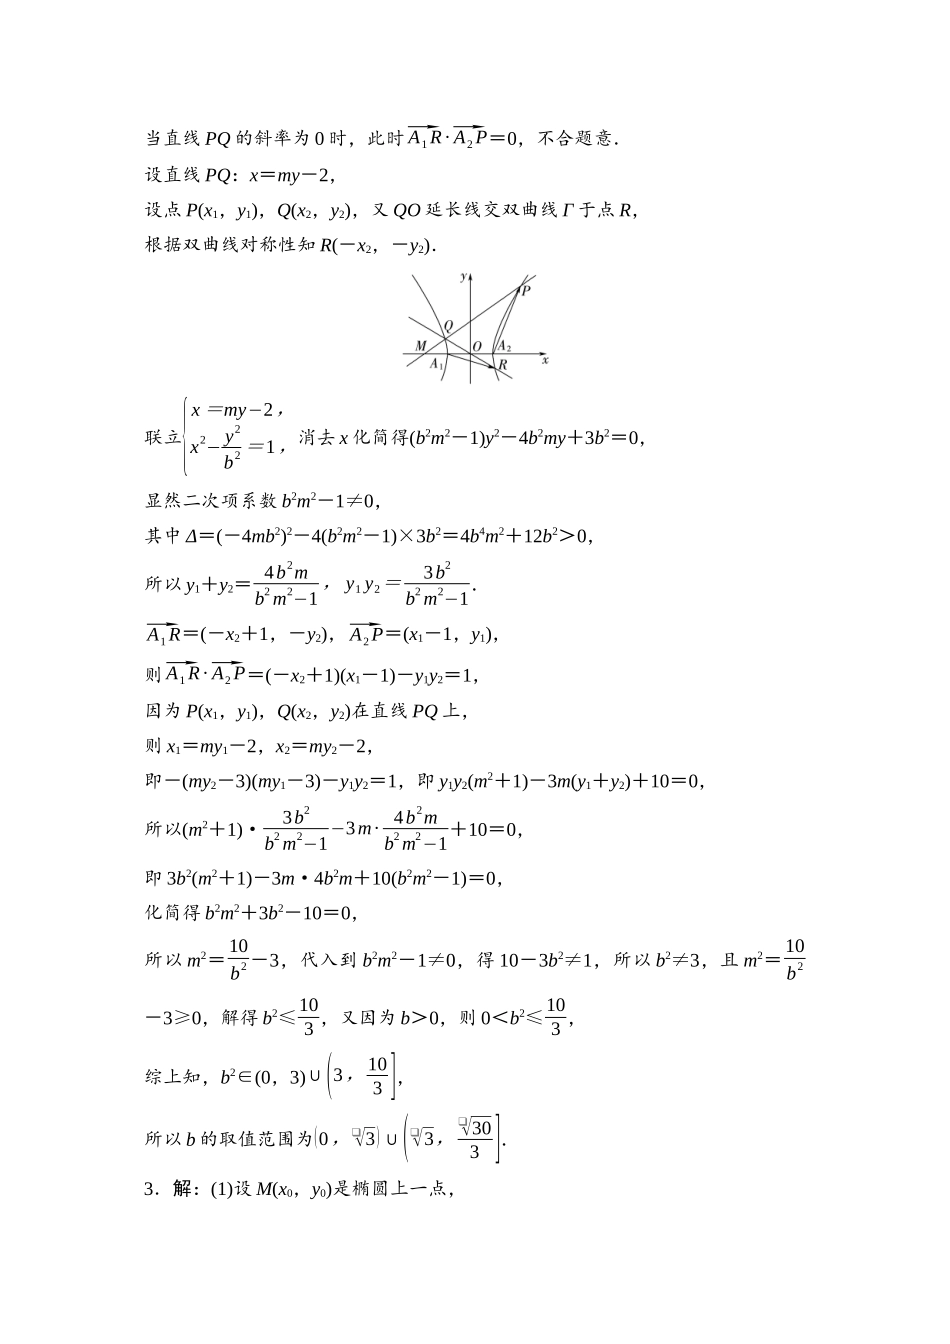 当直线 PQ 的斜率为 0 时，此时 \overrightarrow{A_1R}·\overrightarrow{A_2P}＝0，不合题意．
设直线 PQ：x＝my－2，
设点 P(x₁，y₁)，Q(x₂，y₂)，又 QO 延长线交双曲线 Γ 于点 R，
根据双曲线对称性知 R(－x₂，－y₂)．
y
P
Q
M
O
A₂
x
A₁
R
联立\begin{cases} x＝my－2， \\ x^2－\frac{y^2}{b^2}＝1， \end{cases}消去 x 化简得(b²m²－1)y²－4b²my＋3b²＝0，
显然二次项系数 b²m²－1≠0，
其中 Δ＝(－4mb²)²－4(b²m²－1)×3b²＝4b⁴m²＋12b²＞0，
所以 y₁＋y₂＝\frac{4b^2m}{b^2m^2－1}，y₁y₂＝\frac{3b^2}{b^2m^2－1}．
\overrightarrow{A_1R}＝(－x₂＋1，－y₂)，\overrightarrow{A_2P}＝(x₁－1，y₁)，
则\overrightarrow{A_1R}·\overrightarrow{A_2P}＝(－x₂＋1)(x₁－1)－y₁y₂＝1，
因为 P(x₁，y₁)，Q(x₂，y₂)在直线 PQ 上，
则 x₁＝my₁－2，x₂＝my₂－2，
即－(my₂－3)(my₁－3)－y₁y₂＝1，即 y₁y₂(m²＋1)－3m(y₁＋y₂)＋10＝0，
所以(m²＋1)·\frac{3b^2}{b^2m^2－1}－3m·\frac{4b^2m}{b^2m^2－1}＋10＝0，
即 3b²(m²＋1)－3m·4b²m＋10(b²m²－1)＝0，
化简得 b²m²＋3b²－10＝0，
所以 m²＝\frac{10}{b^2}－3，代入到 b²m²－1≠0，得 10－3b²≠1，所以 b²≠3，且 m²＝\frac{10}{b^2}
－3≥0，解得 b²≤\frac{10}{3}，又因为 b＞0，则 0＜b²≤\frac{10}{3}，
综上知，b²∈(0，3)∪\left(3，\frac{10}{3}\right]，
所以 b 的取值范围为(0，\sqrt{3})∪\left(\sqrt{3}，\frac{\sqrt{30}}{3}\right]．
3．解：(1)设 M(x₀，y₀)是椭圆上一点，